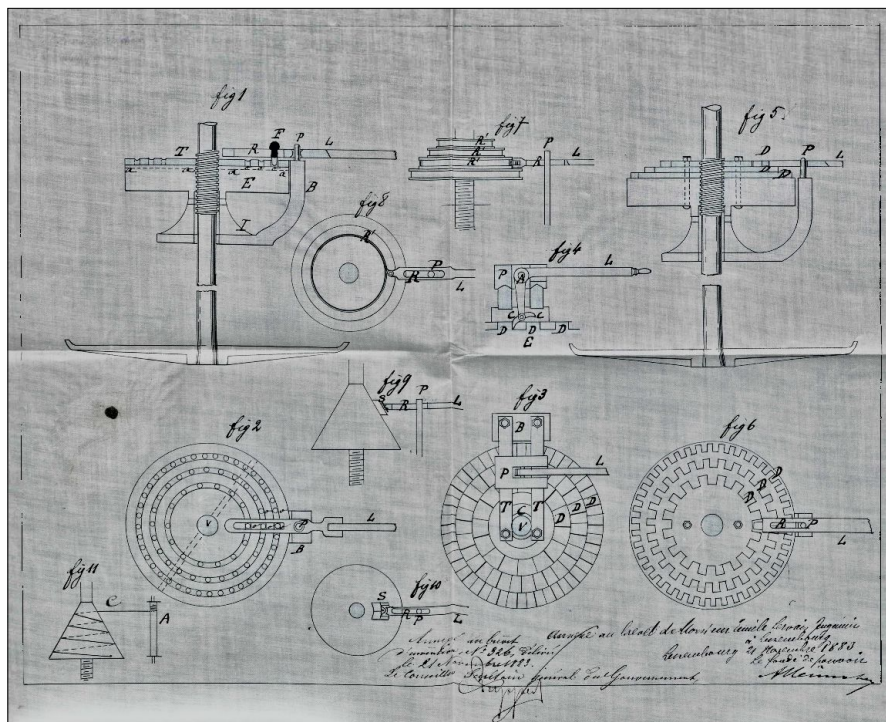 fig 1
F
P
T
R
L
a
a
a
a
E
B
I
fig 7
R'
R'
R'
P
R
L
fig 5
D
P
L
D
D
fig 8
R'
P
R
L
fig 4
P
A
L
C
C
D
D
D
E
fig 9
S
P
R
L
fig 3
B
P
L
T
T
C
V
D
D
D
fig 2
V
P
L
B
fig 6
D
D
D
R
P
L
fig 11
C
A
fig 10
S
R
P
L
Annexé au brevet
d'invention Nº 326, délivré
le 21 Novembre 1883.
Le Conseiller Secrétaire général du Gouvernement
Annexe au brevet de Monsieur
à Luxembourg
Luxembourg 21 Novembre 1883
le fondé de pouvoir